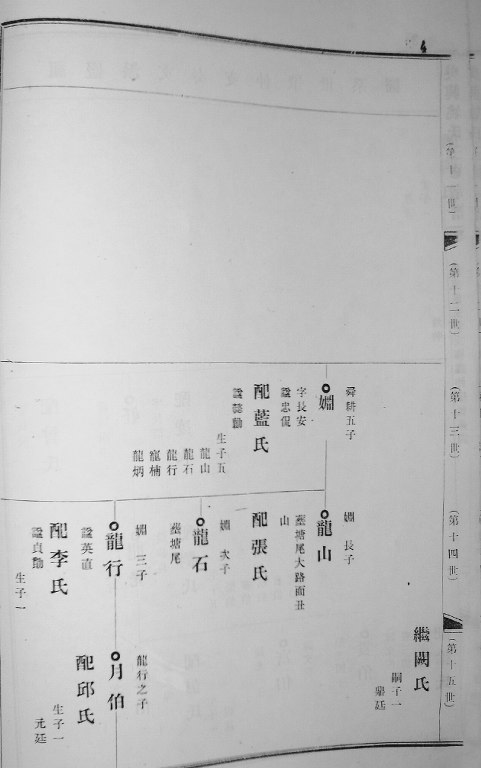 4
(第十一世)
(第十二世)
(第十三世)
(第十四世)
(第十五世)
舜耕五子
嫺
字長安
諡忠侃
配藍氏
諡懿勤
生子五
龍山
龍石
龍行
龍楠
龍炳
嫺 長子
龍山
塘尾大路面丑
山
配張氏
嫺 次子
龍石
塘尾
嫺 三子
龍行
諡英直
配李氏
諡貞勤
生子一
繼闕氏
嗣子一
廷
龍行之子
月伯
配邱氏
生子一
元廷